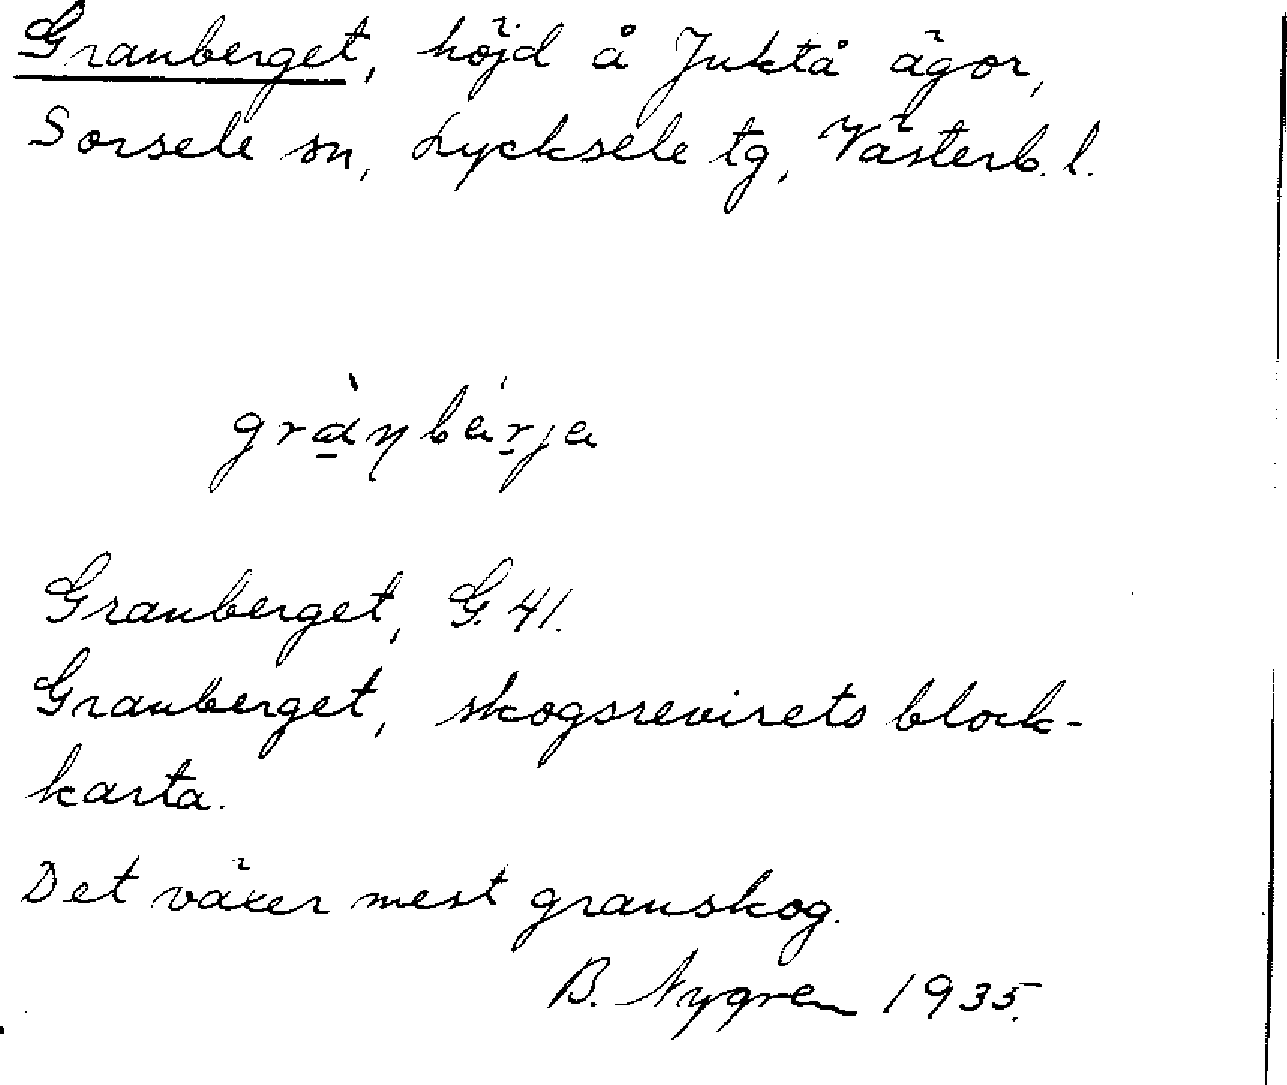 Granberget, höjd å Juktå ägor,
Sorsele sn, Lycksele tg, Västerb. l.
grànbárja
Granberget, G. 41.
Granberget, skogsrevirets block-
karta.
Det växer mest granskog.
B. Nygren 1935.